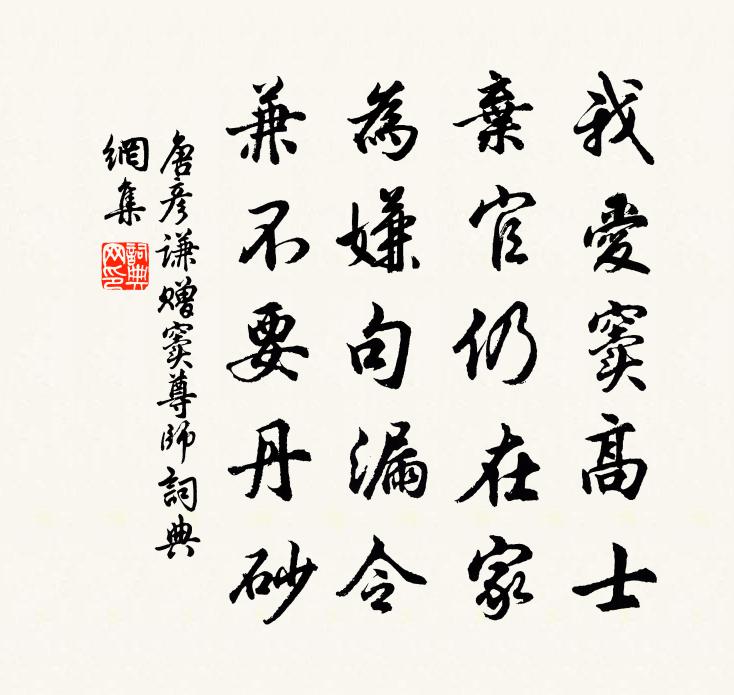 我愛竇高士
棄官仍在家
為嫌句漏令
兼不要丹砂
唐彥謙贈竇尊師詞典
網集
詞典網印